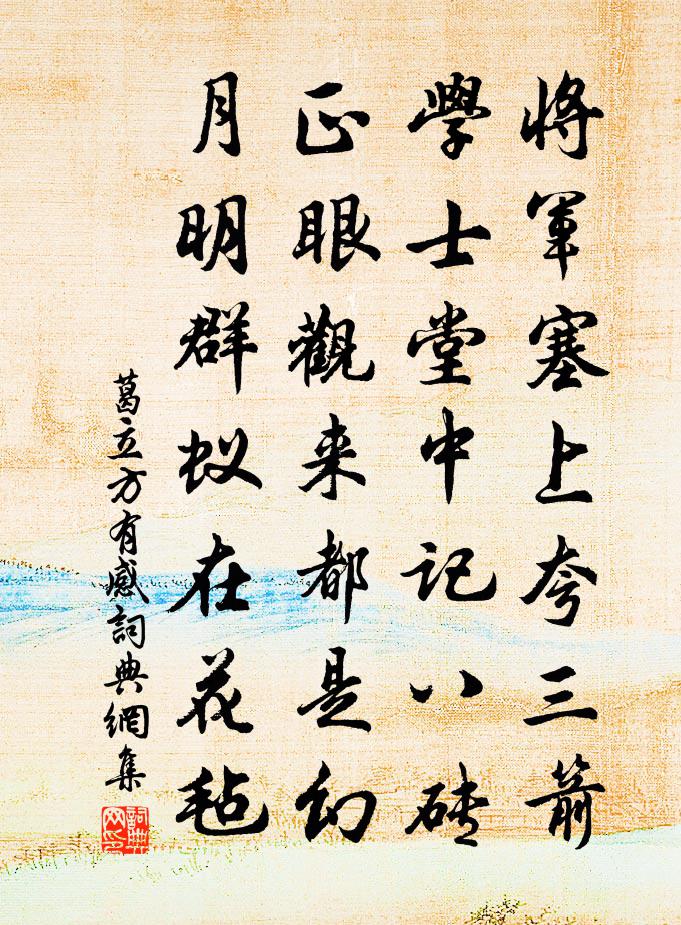 将军塞上夸三箭
學士堂中记八砖
正眼觀来都是幻
月明群蚁在花毡
葛立方有感詞典網集
詞典
网印